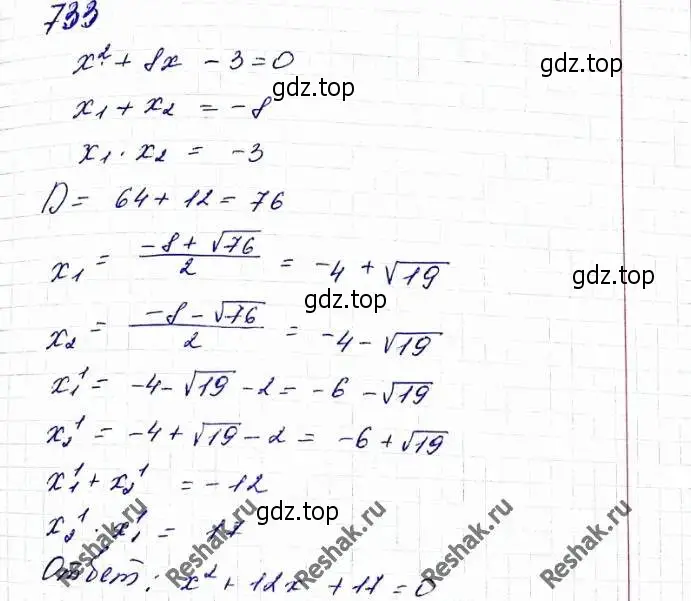 733
x² + 8x - 3 = 0
gdz.top
x₁ + x₂ = -8
x₁ · x₂ = -3
D = 64 + 12 = 76
x₁ = (-8 + √76)/2 = -4 + √19
gdz.top
gdz.top
x₂ = (-8 - √76)/2 = -4 - √19
x₁¹ = -4 - √19 - 2 = -6 - √19
x₂¹ = -4 + √19 - 2 = -6 + √19
x₁¹ + x₂¹ = -12
x₂¹ · x₁¹ = 17
gdz.top
Ответ: x² + 12x + 17 = 0
Reshak.ru
Reshak.ru
Reshak.ru
Reshak.ru
Reshak.ru